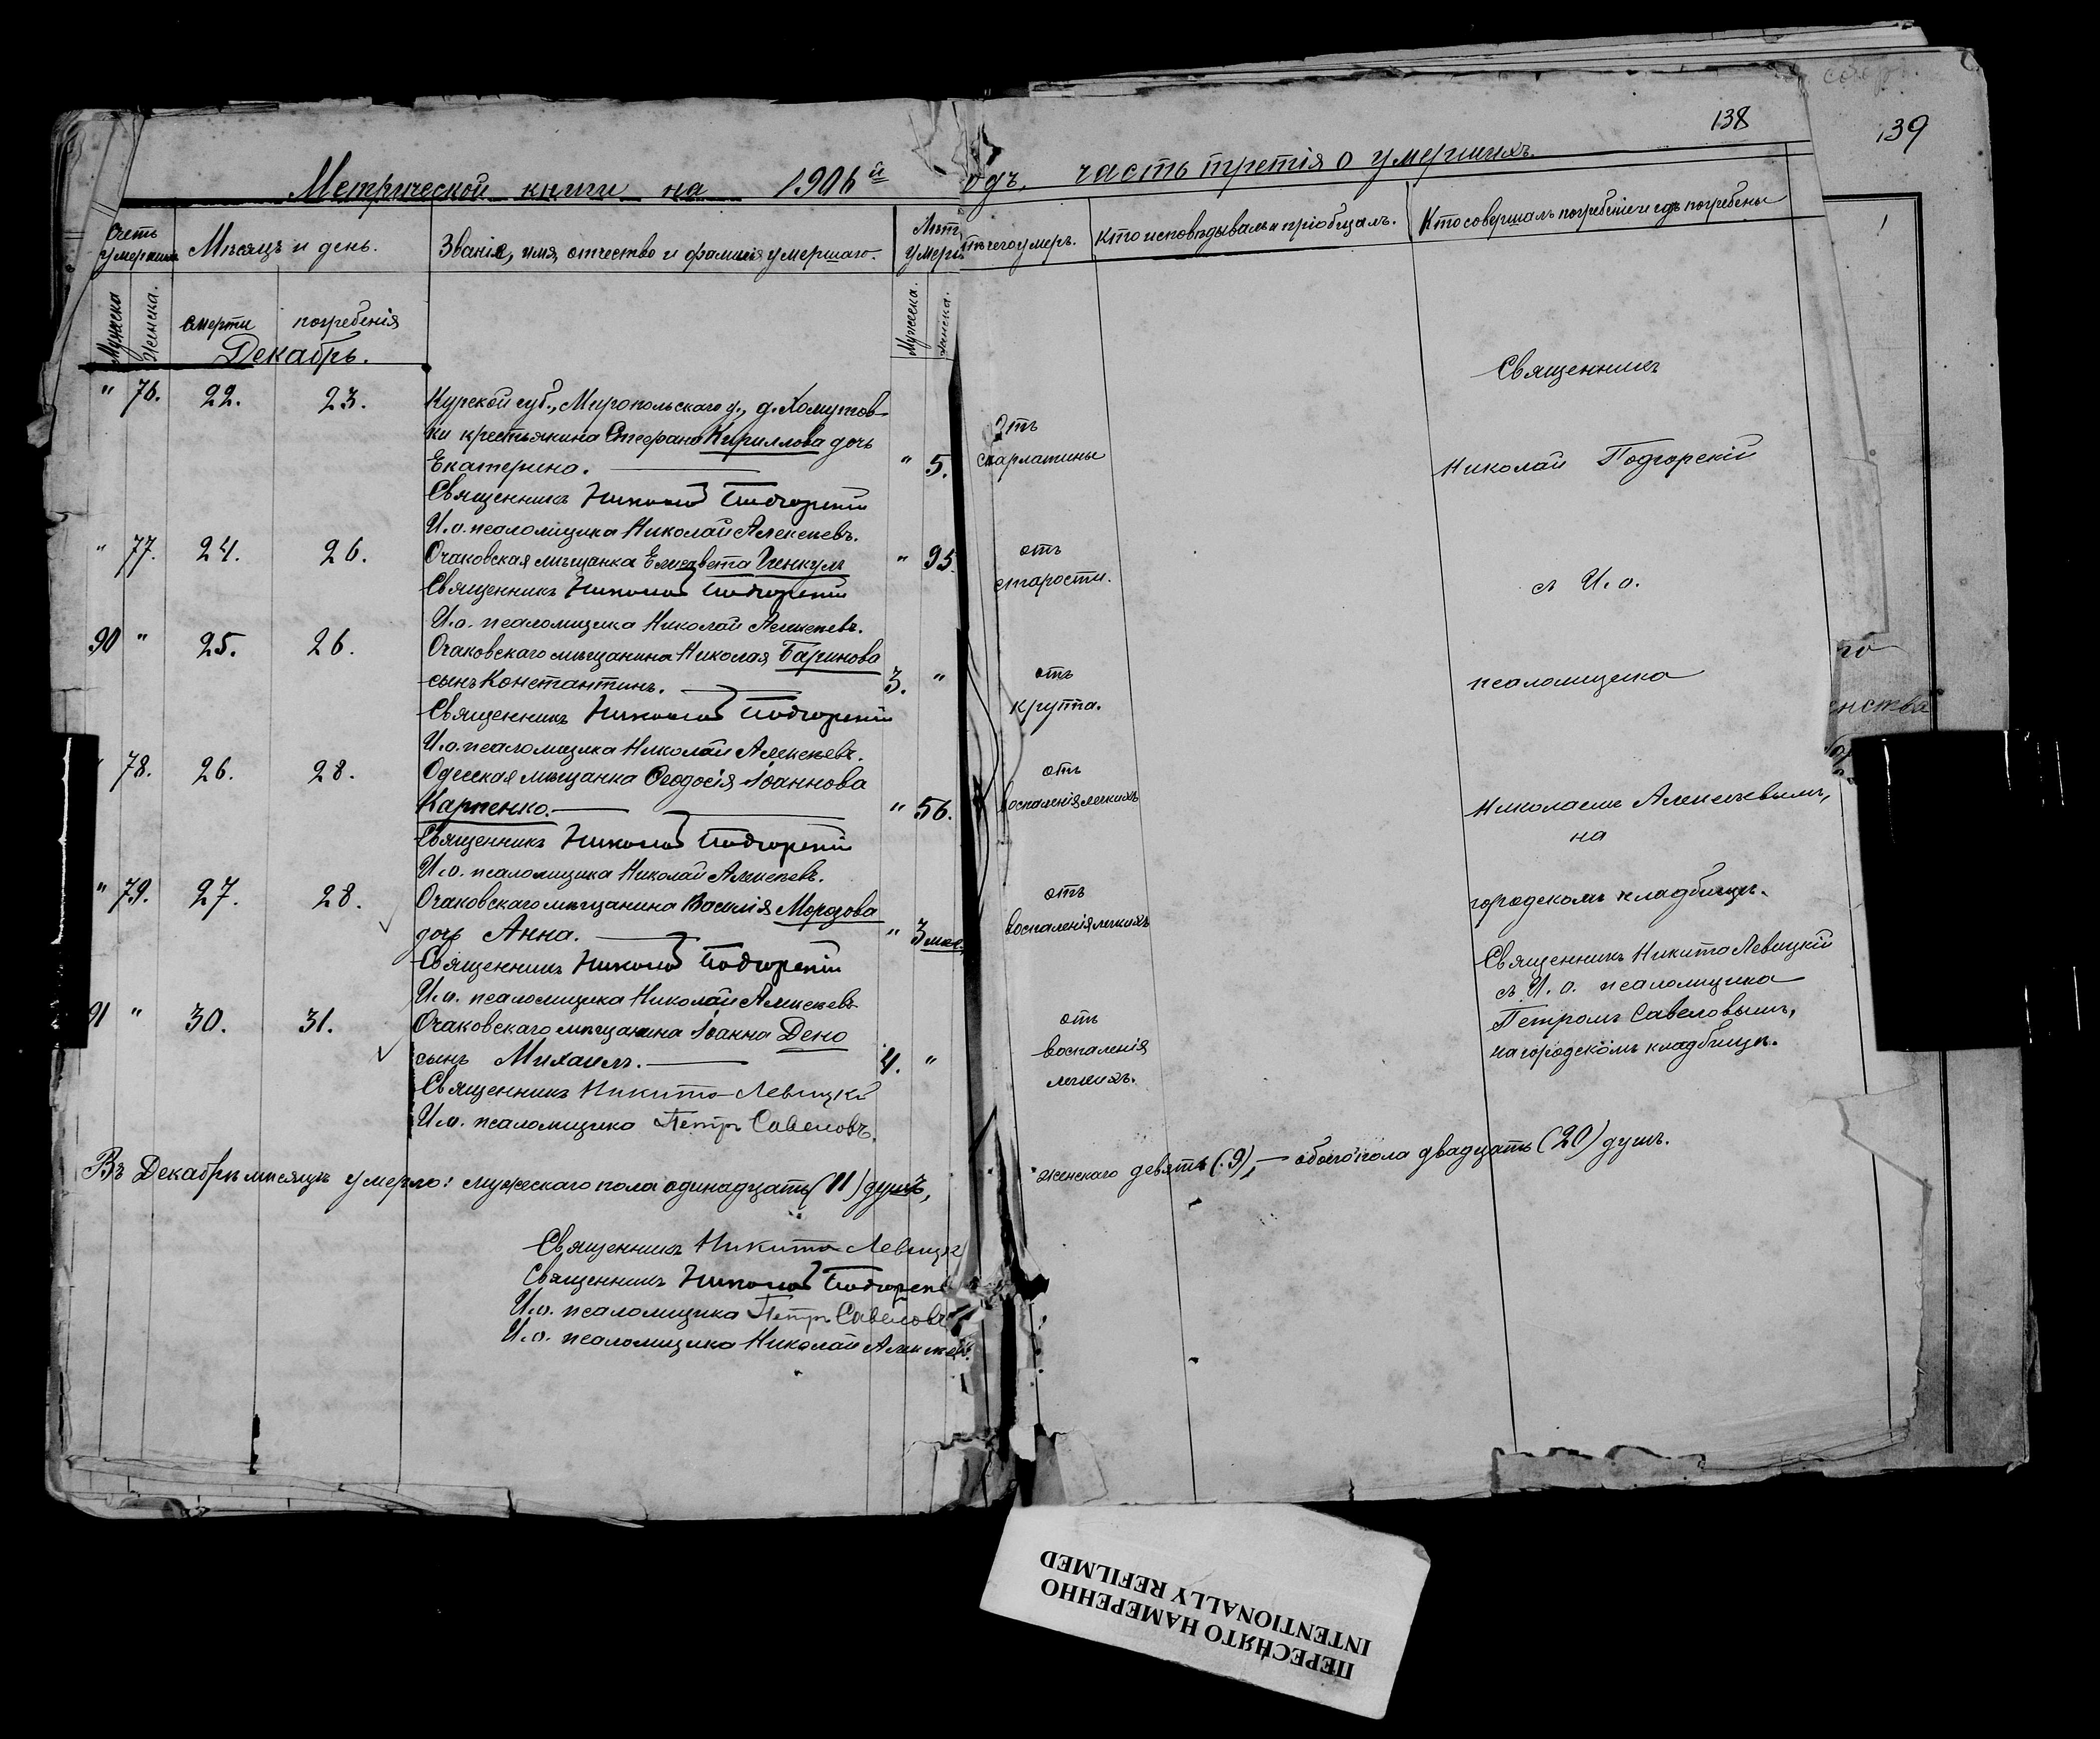 138
139
Метрической книги на 1906й
годъ, часть третія о умершихъ.
Счетъ умершихъ
Мѣсяцъ и день.
Званіе, имя, отчество и фамилія умершаго.
Лѣта умерш
отъ чего умеръ.
Кто исповѣдывалъ и пріобщалъ.
Кто совершалъ погребеніе и гдѣ погребены
Мужеска
Женска.
смерти
погребенія
Мужеска.
Женска.
Декабрь.
" 76. 22. 23. Курской губ., Миропольскаго у., д. Хомутов-
ки крестьянина Стефана Кириллова дочь
Екатерина. " 5. Отъ скарлатины
Священникъ Николай Подгорскій
И.о. псаломщика Николай Алексѣевъ.
" 77. 24. 26. Очаковская мѣщанка Елисавета " 95. отъ старости.
Священникъ Николай Подгорскій
И.о. псаломщика Николай Алексѣевъ.
90 " 25. 26. Очаковскаго мѣщанина Николая Баринова
сынъ Константинъ. 3. " отъ круппа.
Священникъ Николай Подгорскій
И.о. псаломщика Николай Алексѣевъ.
" 78. 26. 28. Одесская мѣщанка Ѳеодосія Іоаннова
Карпенко. " 56. отъ воспаленія легкихъ
Священникъ Николай Подгорскій
И.о. псаломщика Николай Алексѣевъ.
" 79. 27. 28. Очаковскаго мѣщанина Василія Морозова
дочь Анна. " 3 мѣс. отъ воспаленія легкихъ
Священникъ Николай Подгорскій
И.о. псаломщика Николай Алексѣевъ
91 " 30. 31. Очаковскаго мѣщанина Іоанна Дено
сынъ Михаилъ. 4. " отъ воспаленія легкихъ.
Священникъ Никита Левицкій
И.о. псаломщика Петръ Савеловъ.
Священникъ
Николай Подгорскій
съ И.о.
псаломщика
Николаемъ Алексѣевымъ,
на
городскомъ кладбищѣ.
Священникъ Никита Левицкій
съ И.о. псаломщика
Петромъ Савеловымъ,
на городскомъ кладбищѣ.
Въ Декабрѣ мѣсяцѣ умерло: мужескаго пола одинадцать (11) душъ,
женскаго девять (9), — обоего пола двадцать (20) душъ.
Священникъ Никита Левицк
Священникъ Николай Подгорскі
И.о. псаломщика Петръ Савеловъ
И.о. псаломщика Николай Алексѣевъ.
го
нства
ПЕРЕСНЯТО НАМЕРЕННО
INTENTIONALLY REFILMED